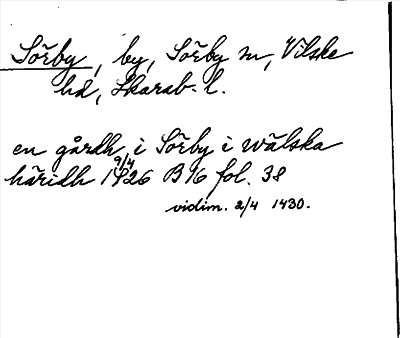 Sörby, by, Sörby sn, Vilske
hd, Skarab. l.
en gårdh i Sörby i wälska
häridh 9/4 1426 B 16 fol. 38
vidim. 2/4 1430.